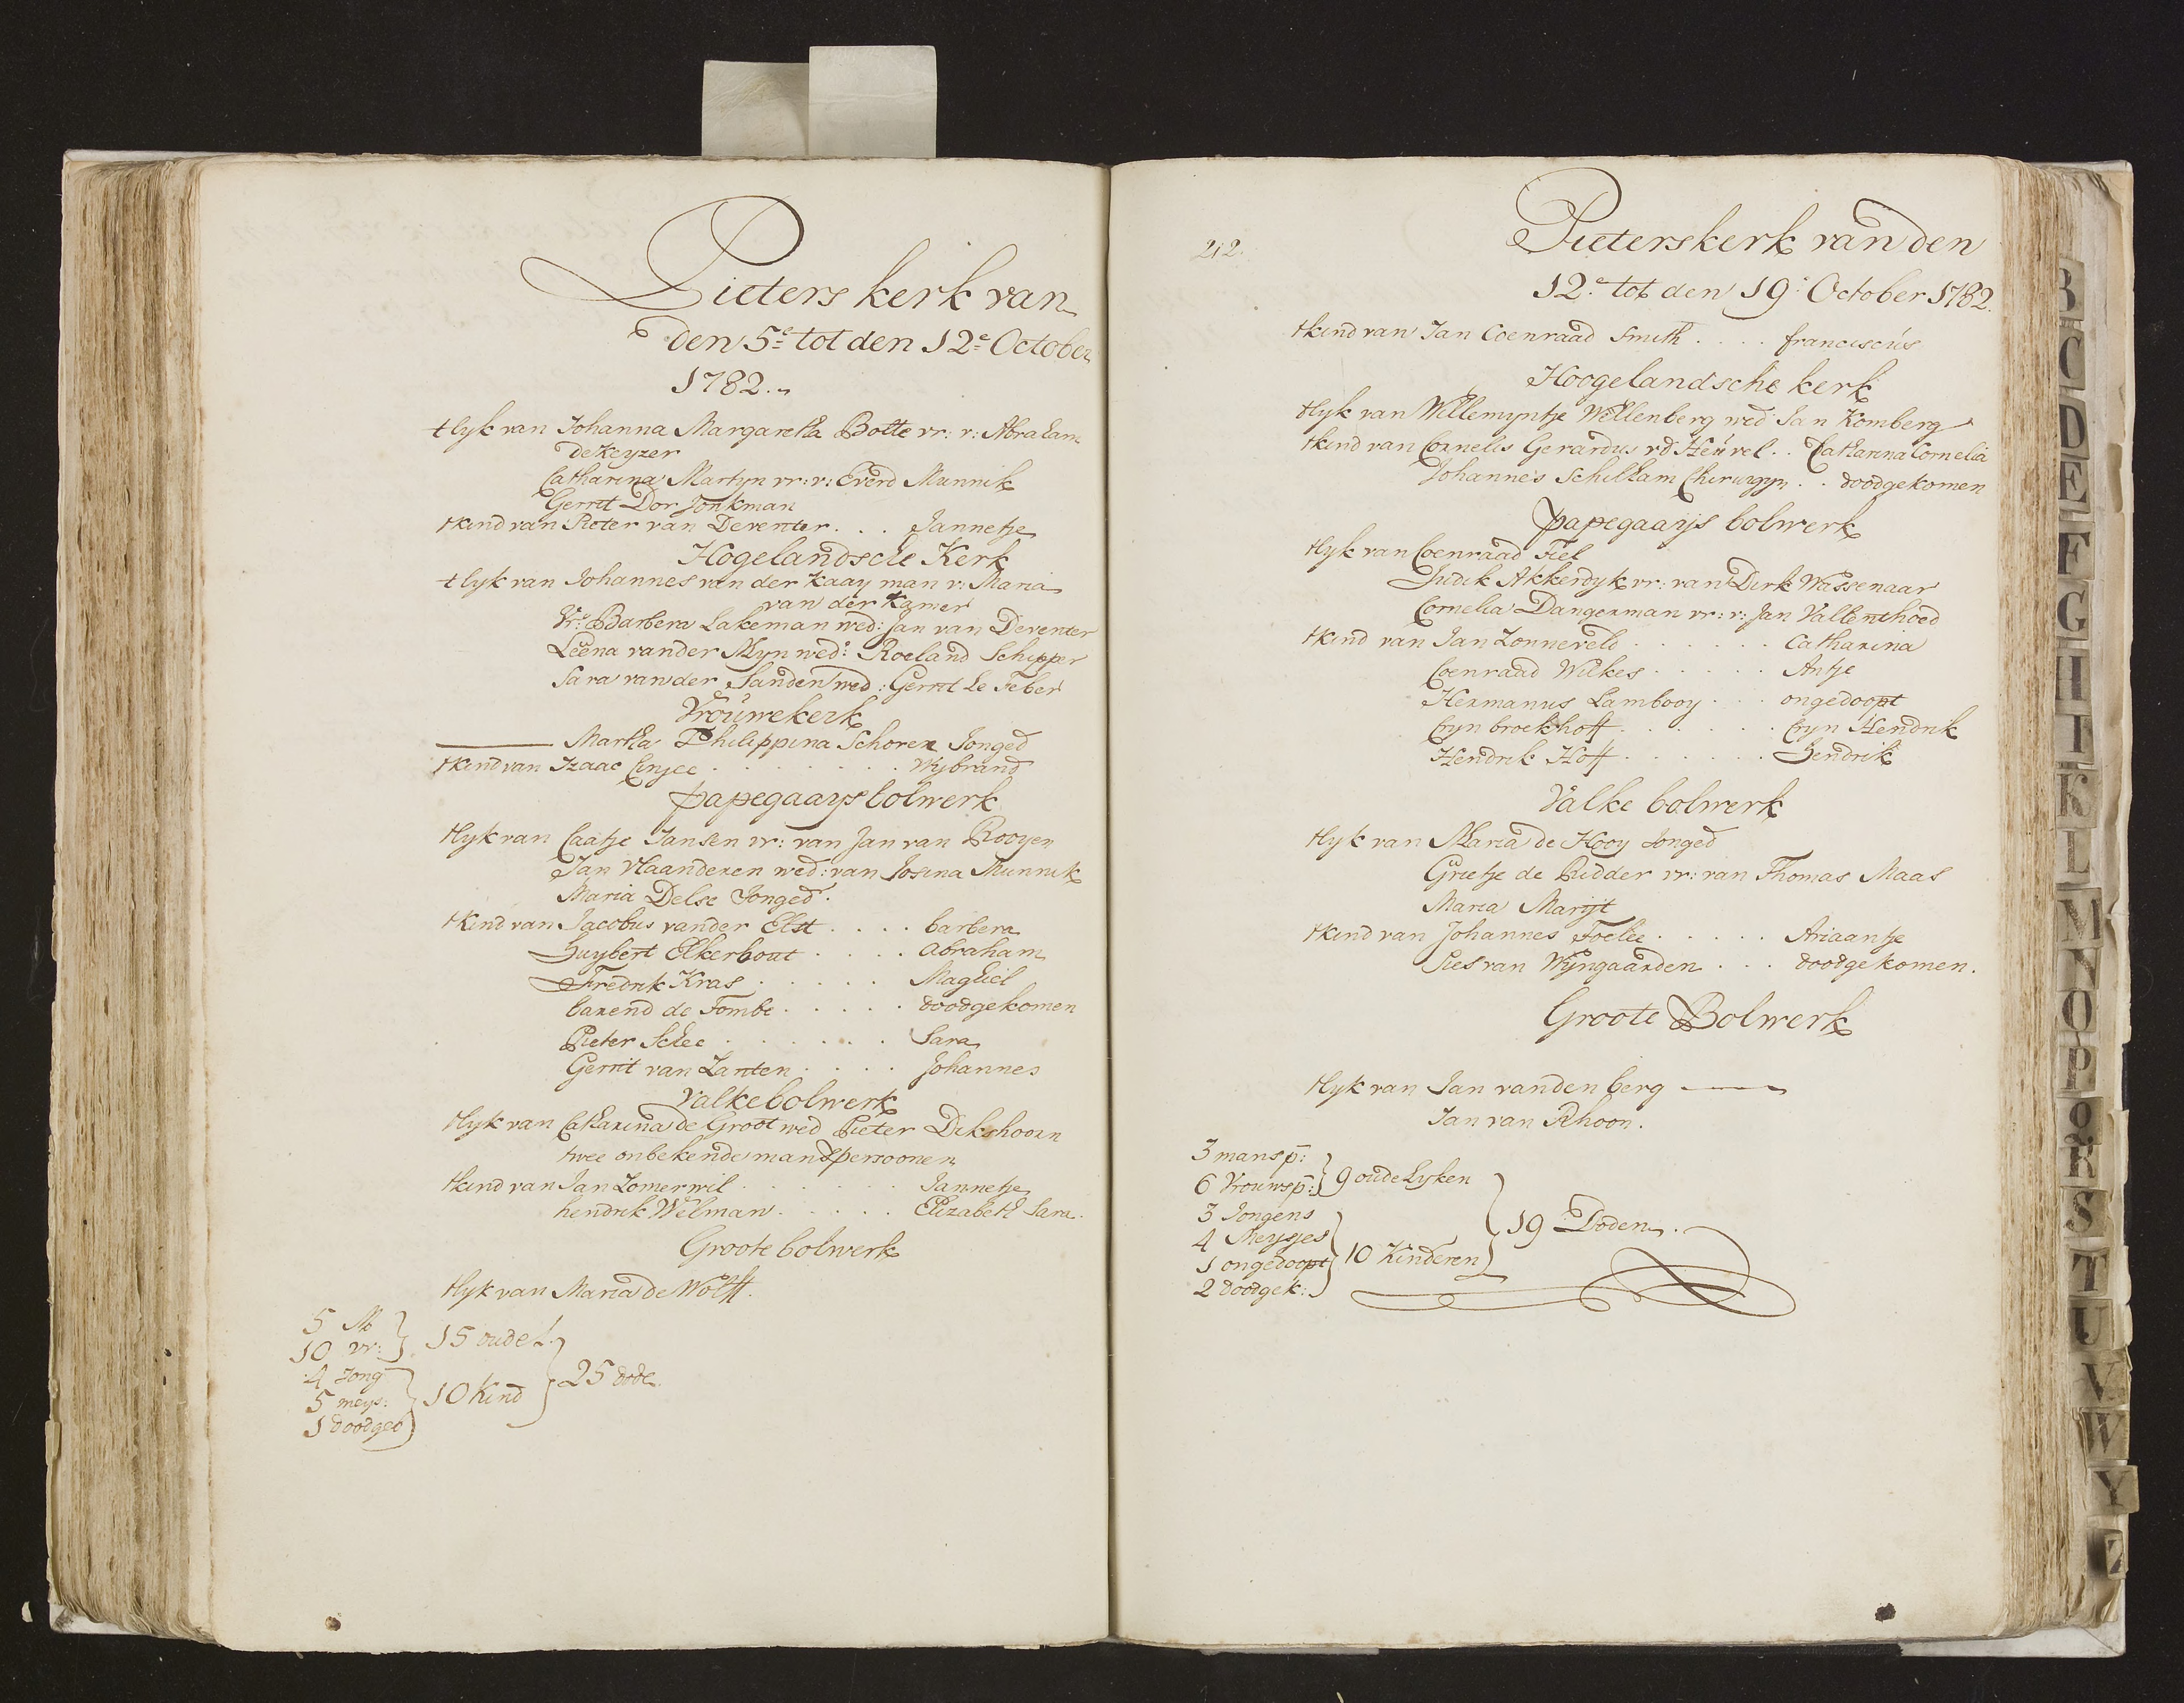 Pieters kerk van
den 5e tot den 12e October
1782.
tlyk van Johanna Margaretha Botte vr: v: Abraham
de Keyzer
Catharina Martyn vr: v: Everd Munnik
Gerrit Dor Jonkman
tkind van Pieter van Deventer . . . Jannetje
Hogelandsche Kerk
tlyk van Johannes van der Kaay man v: Maria
van der Kamer
Vr: Barbera Lakeman wed: Jan van Deventer
Leena vander Myn wed: Roeland Schipper
Sara van der Sanden wed: Gerrit Le Feber
Vrouwekerk
Martha Philippina Schoren Jonged
tkind van Izaac Cinjee . . . . . . . Wybrand
papegaays bolwerk
tlyk van Caatje Jansen vr: van Jan van Rooyen
Jan Vlaanderen wed: van Josina Munnik
Maria Delse Jonged.
tkind van Jacobus vander Elst . . . . barbera
Huybert Elkerbout . . . . abraham
Fredrik Kras . . . . . Maghiel
barend de Tombe . . . . . doodgekomen
Pieter Schee . . . . . . Sara
Gerrit van Zanten . . . . Johannes
Valkebolwerk
tlyk van Catharina de Groot wed Pieter Dikshoorn
twee onbekende manspersoonen
tkind van Jan Zomerwil . . . . . . Jannetje
hendrik Welman . . . . . Elizabeth Sara.
Groote bolwerk
tlyk van Maria de Wolff.
5 M
10 vr:
15 oude l.
4 Jong
5 meys:
1 doodgeo
10 Kind
25 dode
212.
Pieterskerk van den
12e tot den 19e October 1782.
tkind van Jan Coenraad Smith . . . . franciscus
Hoogelandsche kerk
tlyk van Willemyntje Wellenberg wed Jan Komberg
tkind van Cornelis Gerardus vd Heuvel . . Catharina Cornelia
Johannes Schilham Chirurgyn . . doodgekomen
papegaays bolwerk
tlyk van Coenraad Fiel
Judik Akkerdyk vr: van Dirk Wassenaar
Cornelia Dangerman vr: v: Jan Vallenthoed
tkind van Jan Zonneveld . . . . . . Catharina
Coenraad Wilkes . . . . . Antje
Hermanus Lambooy . . . ongedoopt
Cryn broekhoff . . . . . . Cryn Hendrik
Hendrik Hoff . . . . . . Hendrik
Valke bolwerk
tlyk van Maria de Hooy Jonged
Grietje de Ridder vr: van Thomas Maas
Maria Maryt
tkind van Johannes Foelee . . . . . Ariaantje
Pies van Wyngaarden . . . doodgekomen.
Groote Bolwerk
tlyk van Jan vanden berg
Jan van Rhoon.
3 mansp:
6 Vrouwsp:
9 oude Lyken
3 Jongens
4 Meysjes
1 ongedoopt
2 doodgek:
10 Kinderen
19 Doden.
B
C
D
E
F
G
H
I
K
L
M
N
O
P
Q
R
S
T
U
V
W
Y
Z